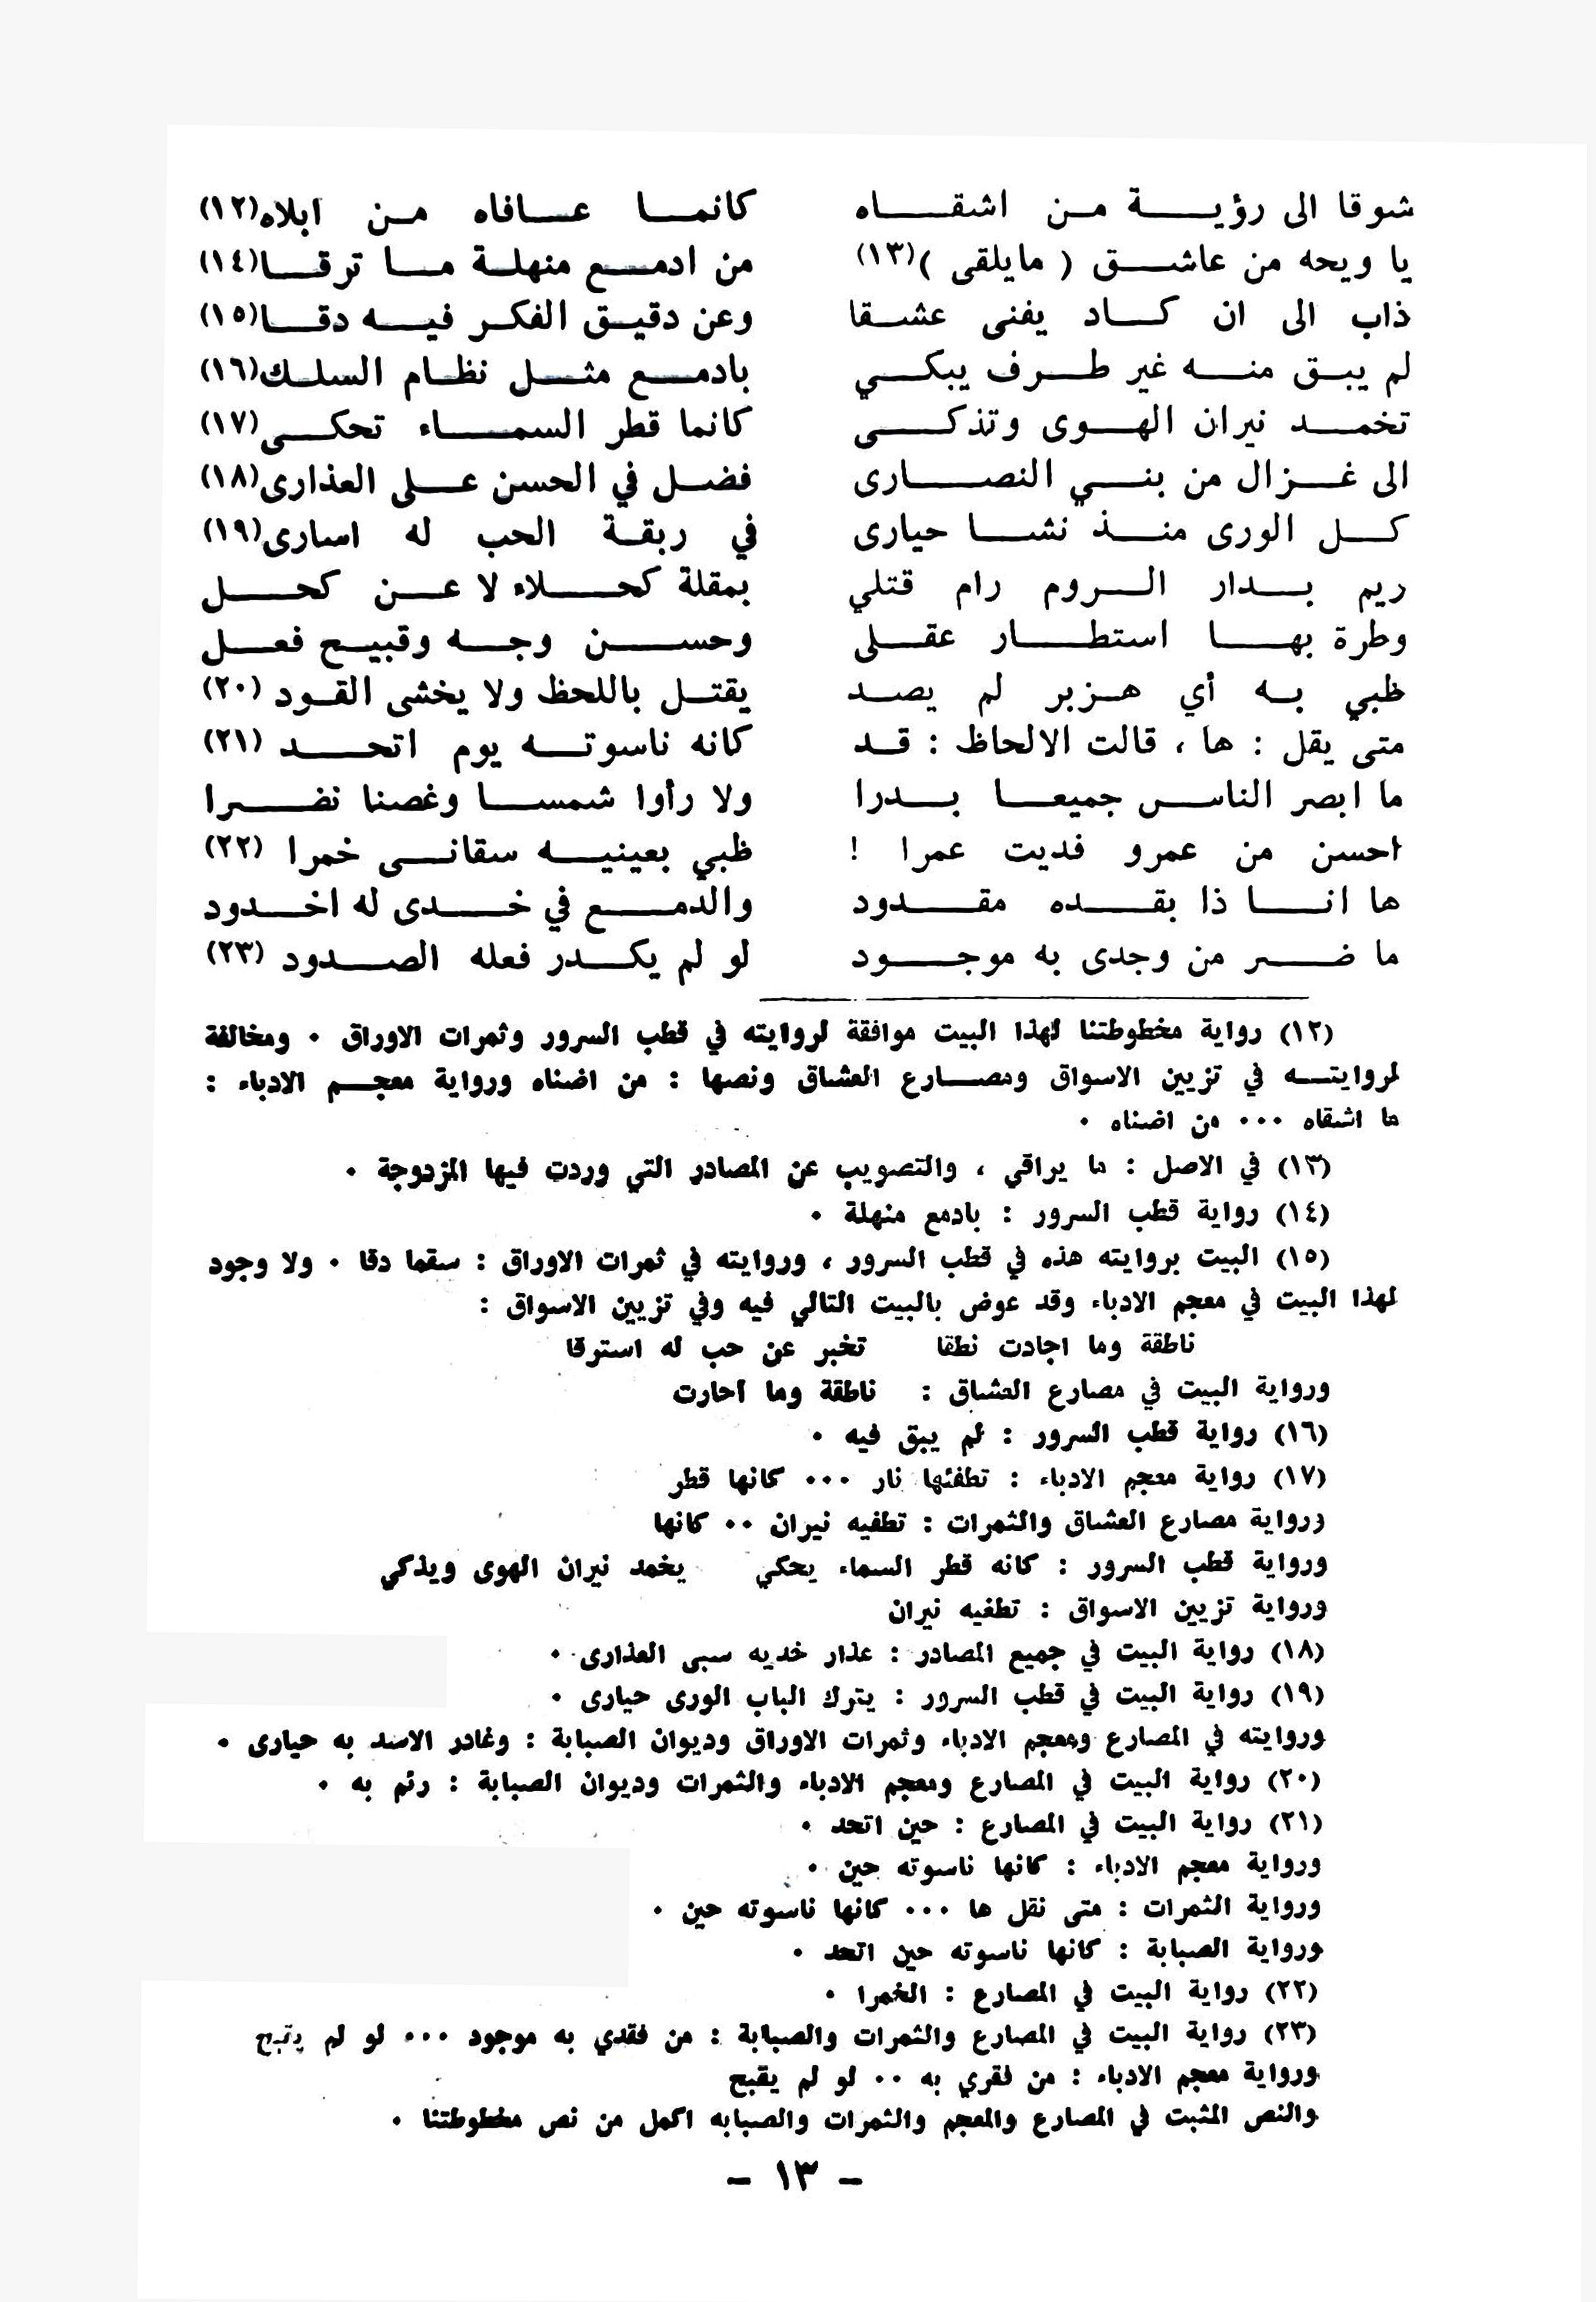 شوقا الى رؤية من اشقاه كانما عافاه من ابلاه(١٢)
يا ويحه من عاشق ( مايلقى )(١٣) من ادمع منهلة ما ترقا(١٤)
ذاب الى ان كاد يفنى عشقا وعن دقيق الفكر فيه دقا(١٥)
لم يبق منه غير طرف يبكي بادمع مثل نظام السلك(١٦)
تخمد نيران الهوى وتذكى كانما قطر السماء تحكى(١٧)
الى غزال من بني النصارى فضل في الحسن على العذارى(١٨)
كل الورى منذ نشا حيارى في ربقة الحب له اسارى(١٩)
ريم بدار الروم رام قتلي بمقلة كحلاء لا عن كحل
وطرة بها استطار عقلى وحسن وجه وقبيح فعل
ظبي به أي هزبر لم يصد يقتل باللحظ ولا يخشى القود (٢٠)
متى يقل : ها ، قالت الالحاظ : قد كانه ناسوته يوم اتحد (٢١)
ما ابصر الناس جميعا بدرا ولا رأوا شمسا وغصنا نضرا
احسن من عمرو فديت عمرا ! ظبي بعينيه سقانى خمرا (٢٢)
ها انا ذا بقده مقدود والدمع في خدى له اخدود
ما ضر من وجدى به موجود لو لم يكدر فعله الصدود (٢٣)
(١٢) رواية مخطوطتنا لهذا البيت موافقة لروايته في قطب السرور وثمرات الاوراق ٠ ومخالفة
لروايته في تزيين الاسواق ومصارع العشاق ونصها : من اضناه ورواية معجم الادباء :
ما اشقاه ٠٠٠ من اضناه ٠
(١٣) في الاصل : ما يراقي ، والتصويب عن المصادر التي وردت فيها المزدوجة ٠
(١٤) رواية قطب السرور : بادمع منهلة ٠
(١٥) البيت بروايته هذه في قطب السرور ، وروايته في ثمرات الاوراق : سقما دقا ٠ ولا وجود
لهذا البيت في معجم الادباء وقد عوض بالبيت التالي فيه وفي تزيين الاسواق :
ناطقة وما اجادت نطقا تخبر عن حب له استرقا
ورواية البيت في مصارع العشاق : ناطقة وما احارت
(١٦) رواية قطب السرور : لم يبق فيه ٠
(١٧) رواية معجم الادباء : تطفئها نار ٠٠٠ كانها قطر
ورواية مصارع العشاق والثمرات : تطفيه نيران ٠٠ كانها
ورواية قطب السرور : كانه قطر السماء يحكي يخمد نيران الهوى ويذكي
ورواية تزيين الاسواق : تطفيه نيران
(١٨) رواية البيت في جميع المصادر : عذار خديه سبى العذارى ٠
(١٩) رواية البيت في قطب السرور : يترك الباب الورى حيارى ٠
وروايته في المصارع ومعجم الادباء وثمرات الاوراق وديوان الصبابة : وغادر الاسد به حيارى ٠
(٢٠) رواية البيت في المصارع ومعجم الادباء والثمرات وديوان الصبابة : رئم به ٠
(٢١) رواية البيت في المصارع : حين اتحد ٠
ورواية معجم الادباء : كانها ناسوته حين ٠
ورواية الثمرات : متى نقل ها ٠٠٠ كانها ناسوته حين ٠
ورواية الصبابة : كانها ناسوته حين اتحد ٠
(٢٢) رواية البيت في المصارع : الخمرا ٠
(٢٣) رواية البيت في المصارع والثمرات والصبابة : من فقدي به موجود ٠٠٠ لو لم يقبح
ورواية معجم الادباء : من فقري به ٠٠ لو لم يقبح
والنص المثبت في المصارع والمعجم والثمرات والصبابه اكمل من نص مخطوطتنا ٠
- ١٣ -